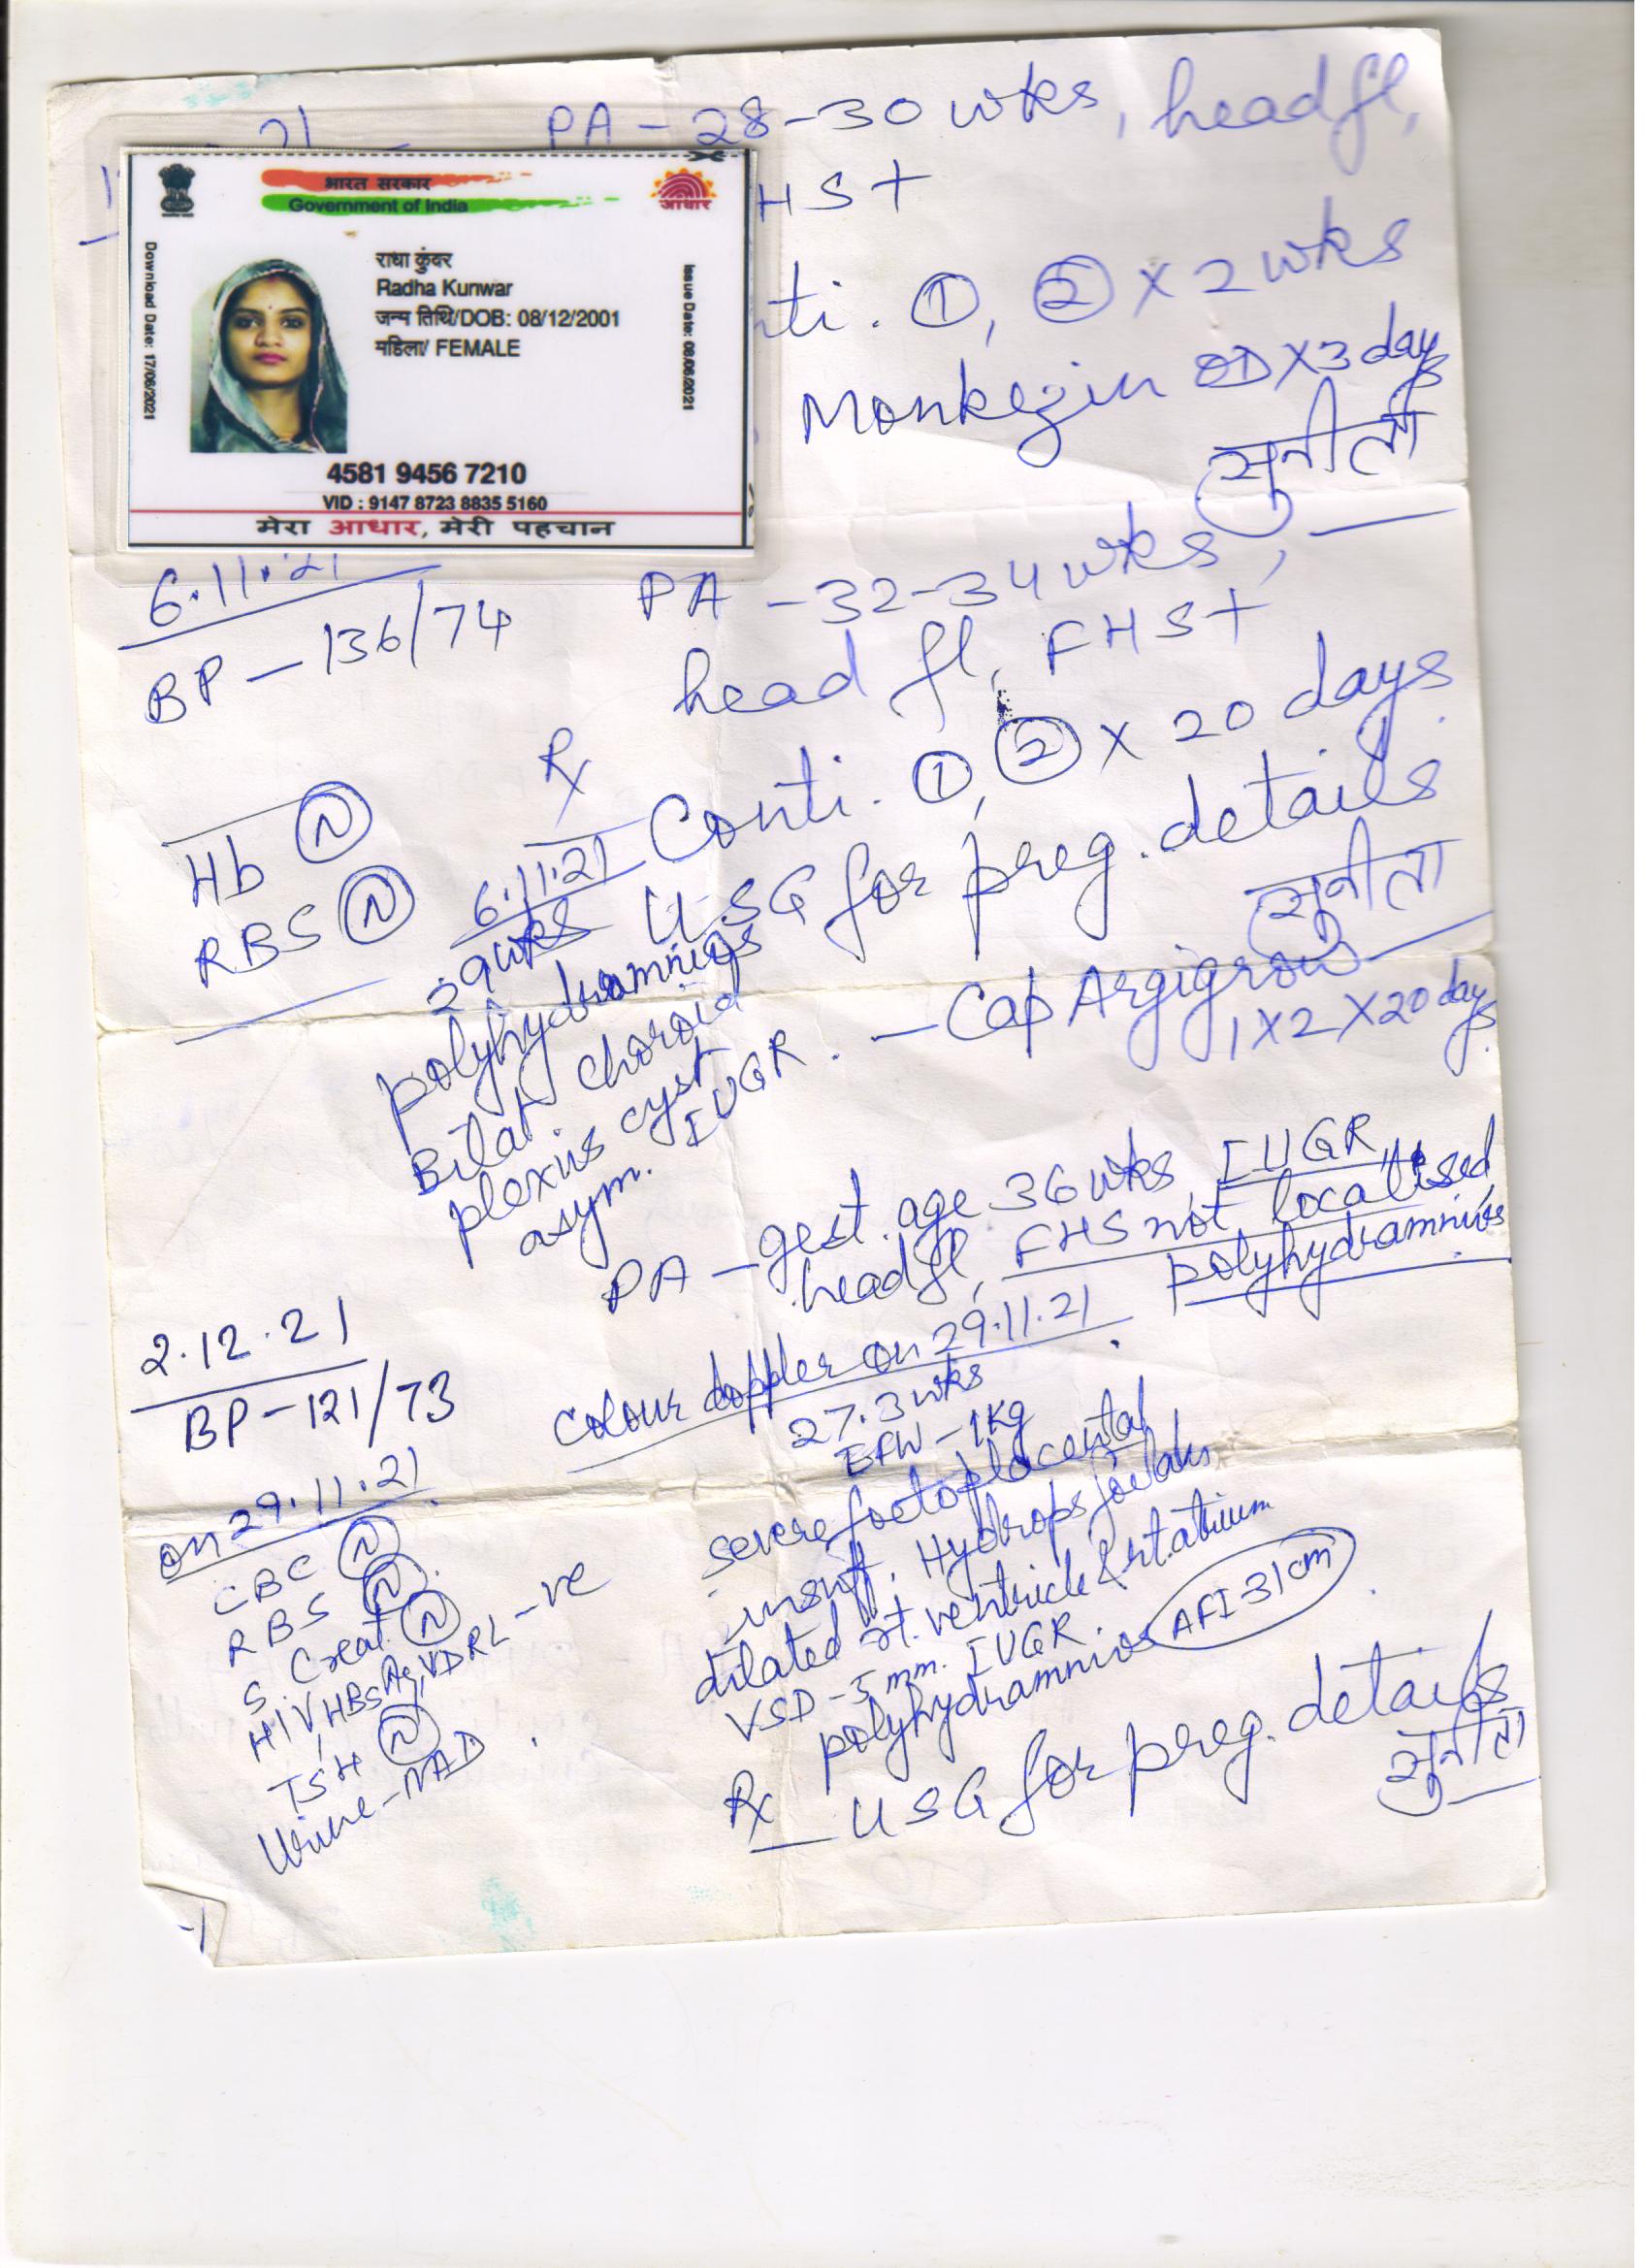 21
PA - 28-30 wks, head fl,
HS+
भारत सरकार
Government of India
आधार
Download Date: 17/06/2021
राधा कुंवर
Radha Kunwar
जन्म तिथि/DOB: 08/12/2001
महिला/ FEMALE
Issue Date: 08/06/2021
4581 9456 7210
VID : 9147 8723 8835 5160
मेरा आधार, मेरी पहचान
nti. ①, ② X 2 wks
OD X 3 days
सुनीता
6.11.21
BP - 136/74
PA - 32-34 wks,
head fl, FHS+
Rx
Conti. ①, ② X 20 days
Hb Ⓝ
RBS Ⓝ
USG for preg. details
सुनीता
6.11.21
29 wks
polyhydramnios
Bilat. choroid
plexus cyst
asym. IUGR.
- Cap Argigrow
1 X 2 X 20 days
2.12.21
BP - 121/73
PA - gest. age 36 wks, IUGR,
head fl, FHS not localised
polyhydramnios
colour doppler on 29.11.21
27.3 wks
EFW - 1 kg
severe foetoplacental
insuff. Hydrops foetalis
dilated rt. ventricle & rt. atrium
VSD - 5 mm. IUGR.
polyhydramnios AFI-31 cm
on 29.11.21
CBC Ⓝ
RBS Ⓝ
S. Creat Ⓝ
HIV, HBsAg, VDRL -ve
TSH Ⓝ
Urine - NAD
Rx
USG for preg. details
सुनीता